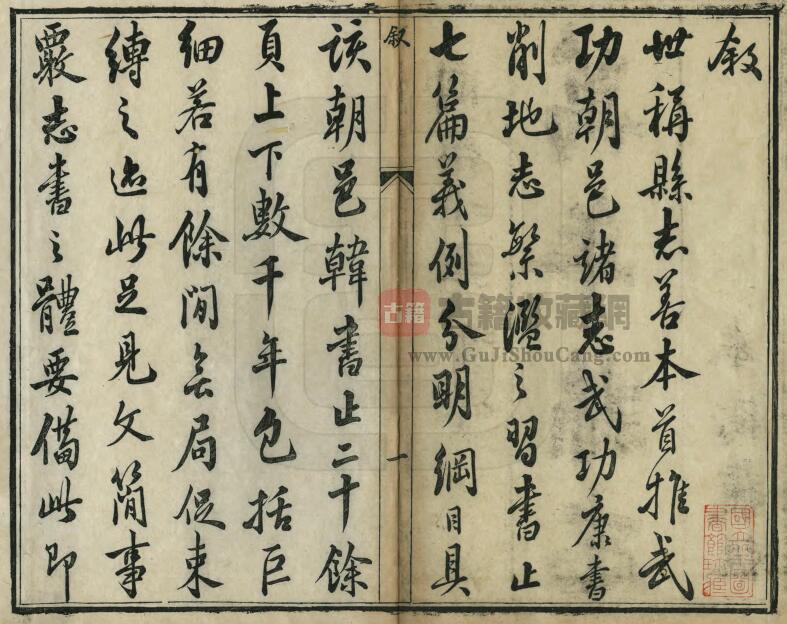 叙
世稱縣志善本首推武
功朝邑諸志武功康書
削地志繁濫之習書止
七篇義例分明綱目具
叙
一
該朝邑韓書止二十餘
頁上下數千年包括巨
細若有餘閒無局促束
縛之迹此足見文簡事
覈志書之體要備此即
古籍 古籍收藏網
www.GuJiShouCang.com